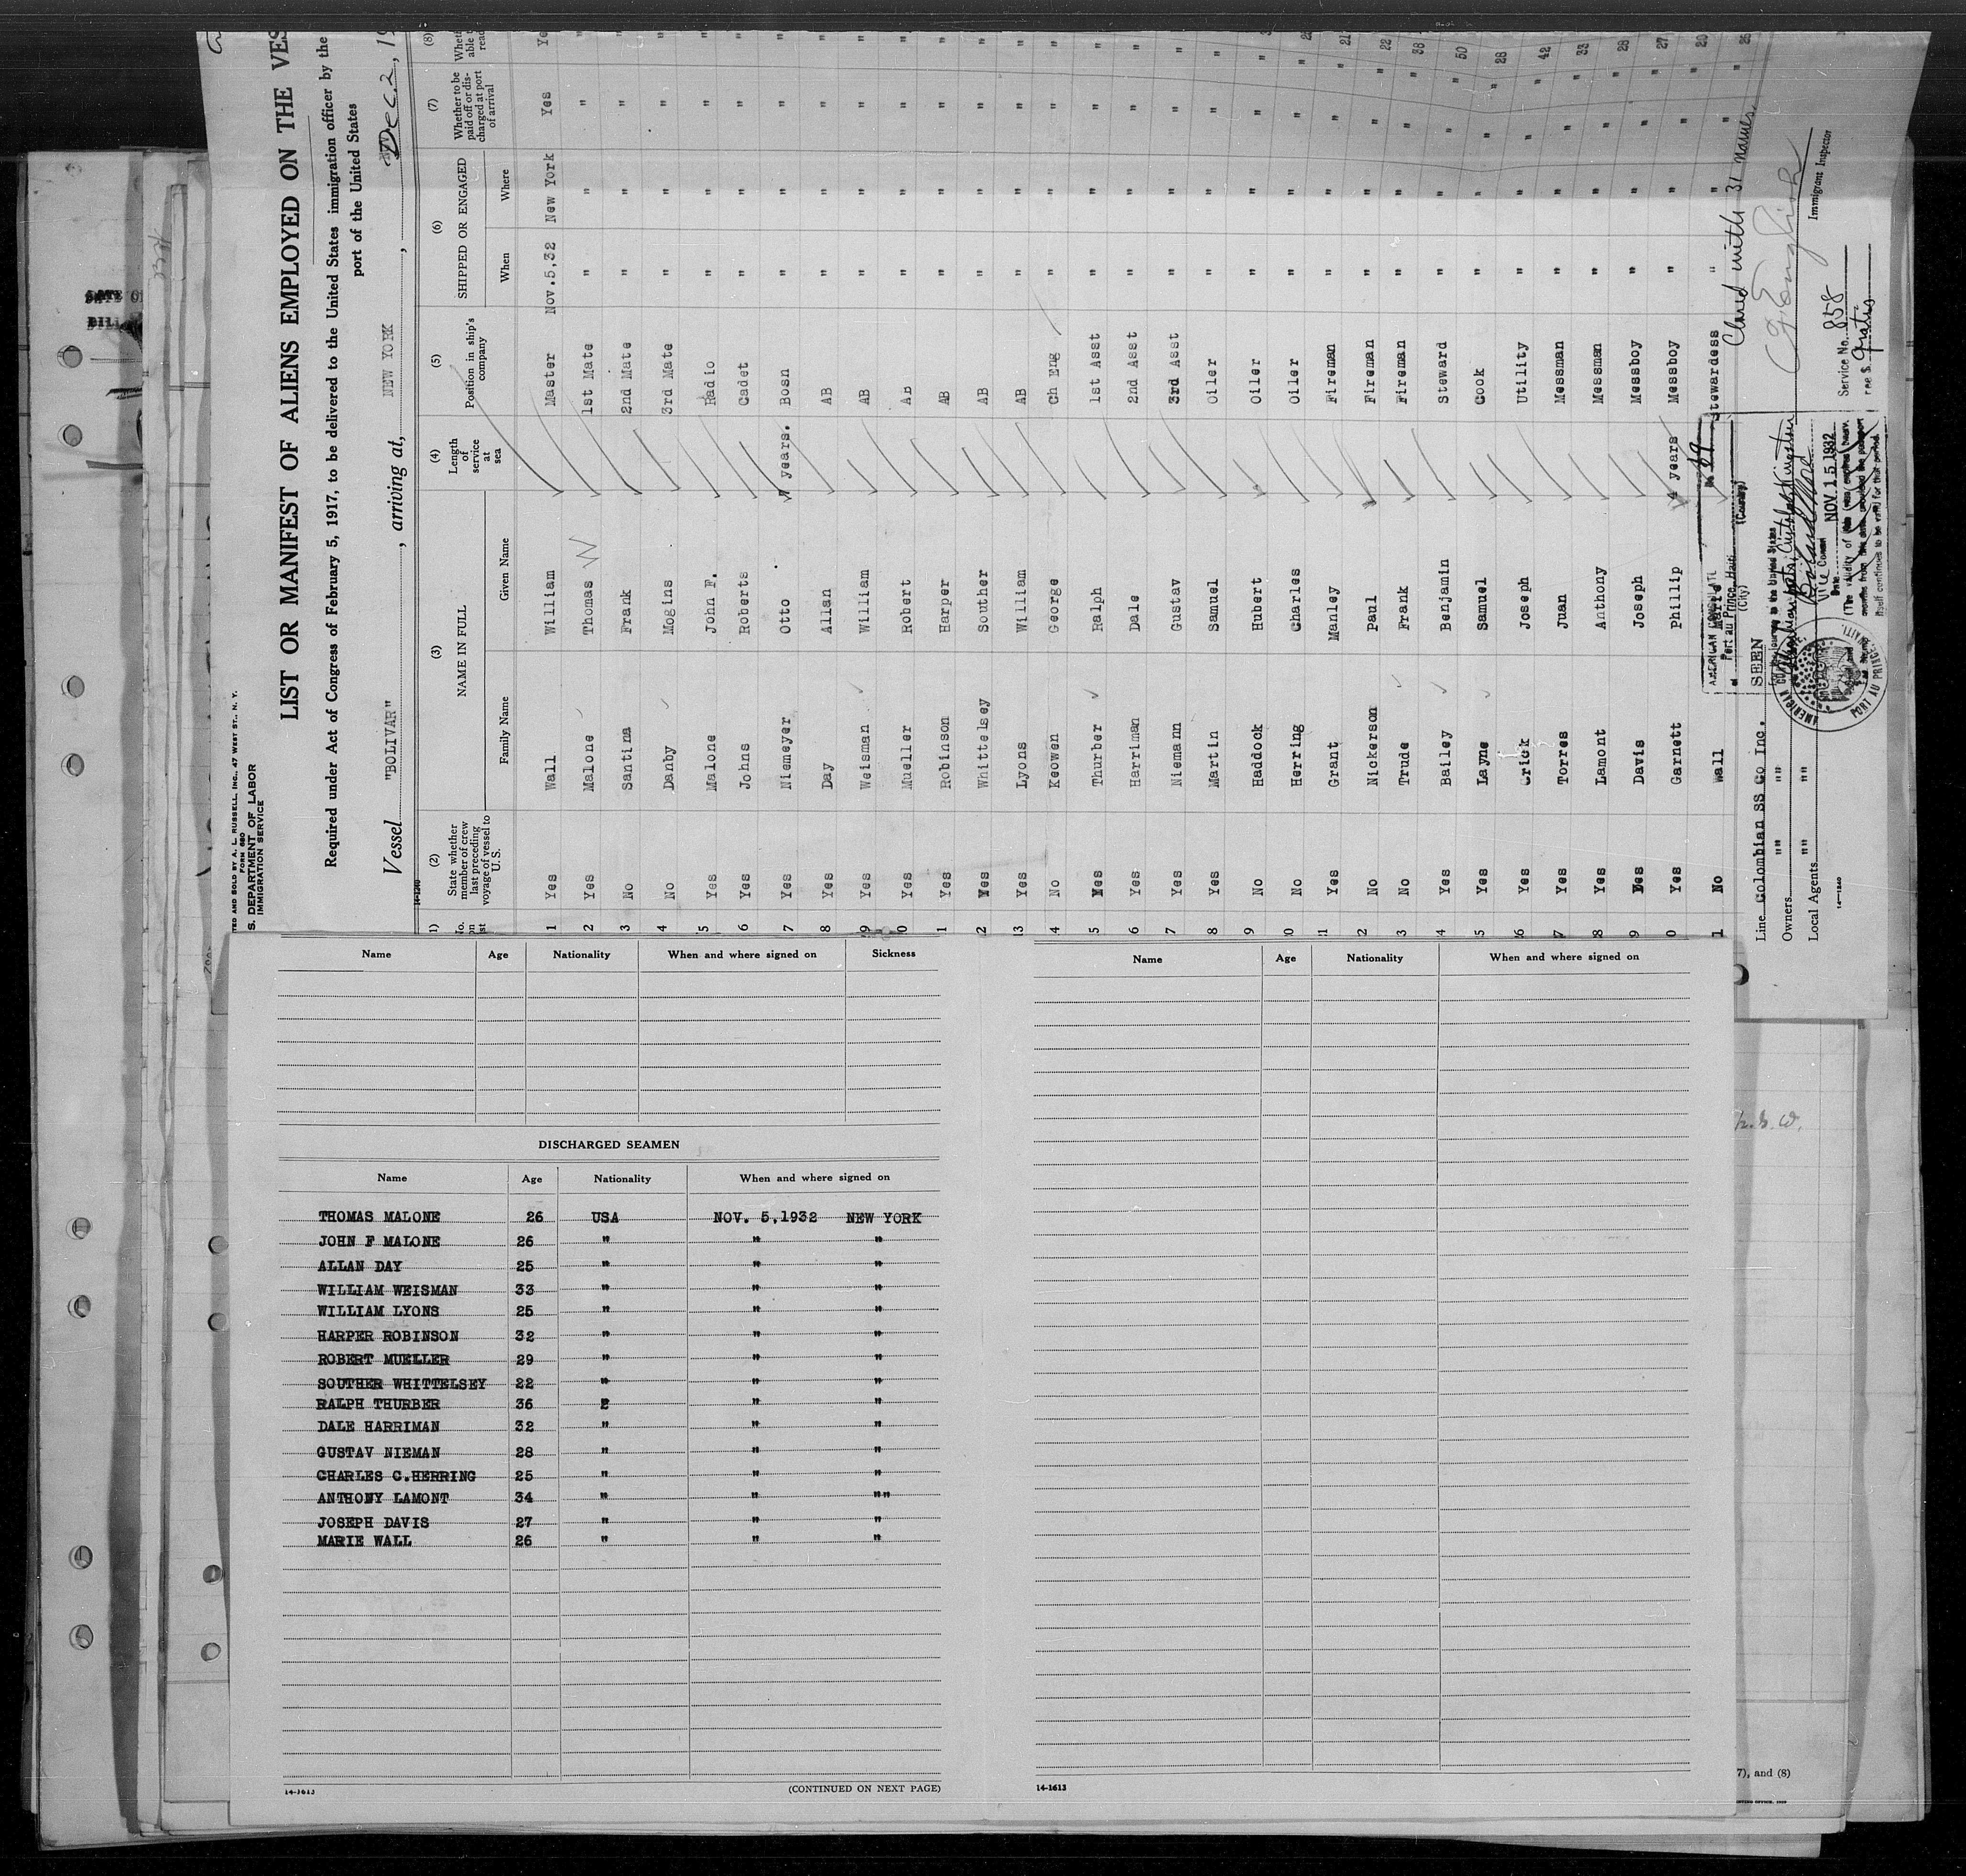 TED AND SOLD BY A. L. RUSSELL, INC., 47 WEST ST., N. Y.
FORM 680
S. DEPARTMENT OF LABOR
IMMIGRATION SERVICE
LIST OR MANIFEST OF ALIENS EMPLOYED ON THE VES
Required under Act of Congress of February 5, 1917, to be delivered to the United States immigration officer by the
port of the United States
Vessel "BOLIVAR", arriving at, NEW YORK, Dec. 2, 19
(2) (3) (4) (5) (6) (7) (8)
State whether member of crew last preceding voyage of vessel to U.S. NAME IN FULL Family Name Given Name Length of service at sea Position in ship's company SHIPPED OR ENGAGED When Where Whether to be paid off or discharged at port of arrival
1 Yes Wall William Master Nov.5,32 New York Yes Ye
2 Yes Malone Thomas 1st Mate " " " "
3 No Santina Frank 2nd Mate " " " "
4 No Danby Mogins 3rd Mate " " " "
5 Yes Malone John F. Radio " " " "
6 Yes Johns Roberts Cadet " " " "
7 Yes Niemeyer Otto 7 years. Bosn " " " "
8 Yes Day Allan AB " " " "
9 Yes Weisman William AB " " " "
0 Yes Mueller Robert AB " " " "
1 Yes Robinson Harper AB " " " "
2 Yes Whittelsey Souther AB " " " "
13 Yes Lyons William AB " " " "
4 No Keowen George Ch Eng " " " "
5 Yes Thurber Ralph 1st Asst " " " "
6 Yes Harriman Dale 2nd Asst " " " "
7 Yes Niemann Gustav 3rd Asst " " " "
8 Yes Martin Samuel Oiler " " " "
9 No Haddock Hubert Oiler " " " "
0 No Herring Charles Oiler " " " "
1 Yes Grant Manley Fireman " " " " 21
2 No Nickerson Paul Fireman " " " " 22
3 No Trude Frank Fireman " " " " 38
4 Yes Bailey Benjamin Steward " " " " 50
5 Yes Layne Samuel Cook " " " " 28
6 Yes Crick Joseph Utility " " " " 42
7 Yes Torres Juan Messman " " " " 33
8 Yes Lamont Anthony Messman " " " " 28
9 Yes Davis Joseph Messboy " " " " 27
0 Yes Garnett Phillip 4 years Messboy " " " " 20
1 No Wall Marie Stewardess " " " " 26
Line Colombian SS Co Inc.
Owners "" ""
Local Agents "" ""
14—1240
AMERICAN CONSULATE
Port au Prince Haiti
(City) (Country)
SEEN
Vice Consul
Date NOV 15 1932
Service No. 858
Fee $ gratis
Cleared with 31 names
Immigrant Inspector
Name Age Nationality When and where signed on Sickness
DISCHARGED SEAMEN
Name Age Nationality When and where signed on
THOMAS MALONE 26 USA NOV. 5,1932 NEW YORK
JOHN F MALONE 26 " " "
ALLAN DAY 25 " " "
WILLIAM WEISMAN 33 " " "
WILLIAM LYONS 25 " " "
HARPER ROBINSON 32 " " "
ROBERT MUELLER 29 " " "
SOUTHER WHITTELSEY 22 " " "
RALPH THURBER 36 " " "
DALE HARRIMAN 32 " " "
GUSTAV NIEMAN 28 " " "
CHARLES C.HERRING 25 " " "
ANTHONY LAMONT 34 " " ""
JOSEPH DAVIS 27 " " "
MARIE WALL 26 " " "
14-1613
(CONTINUED ON NEXT PAGE)
Name Age Nationality When and where signed on
14-1613
7), and (8)